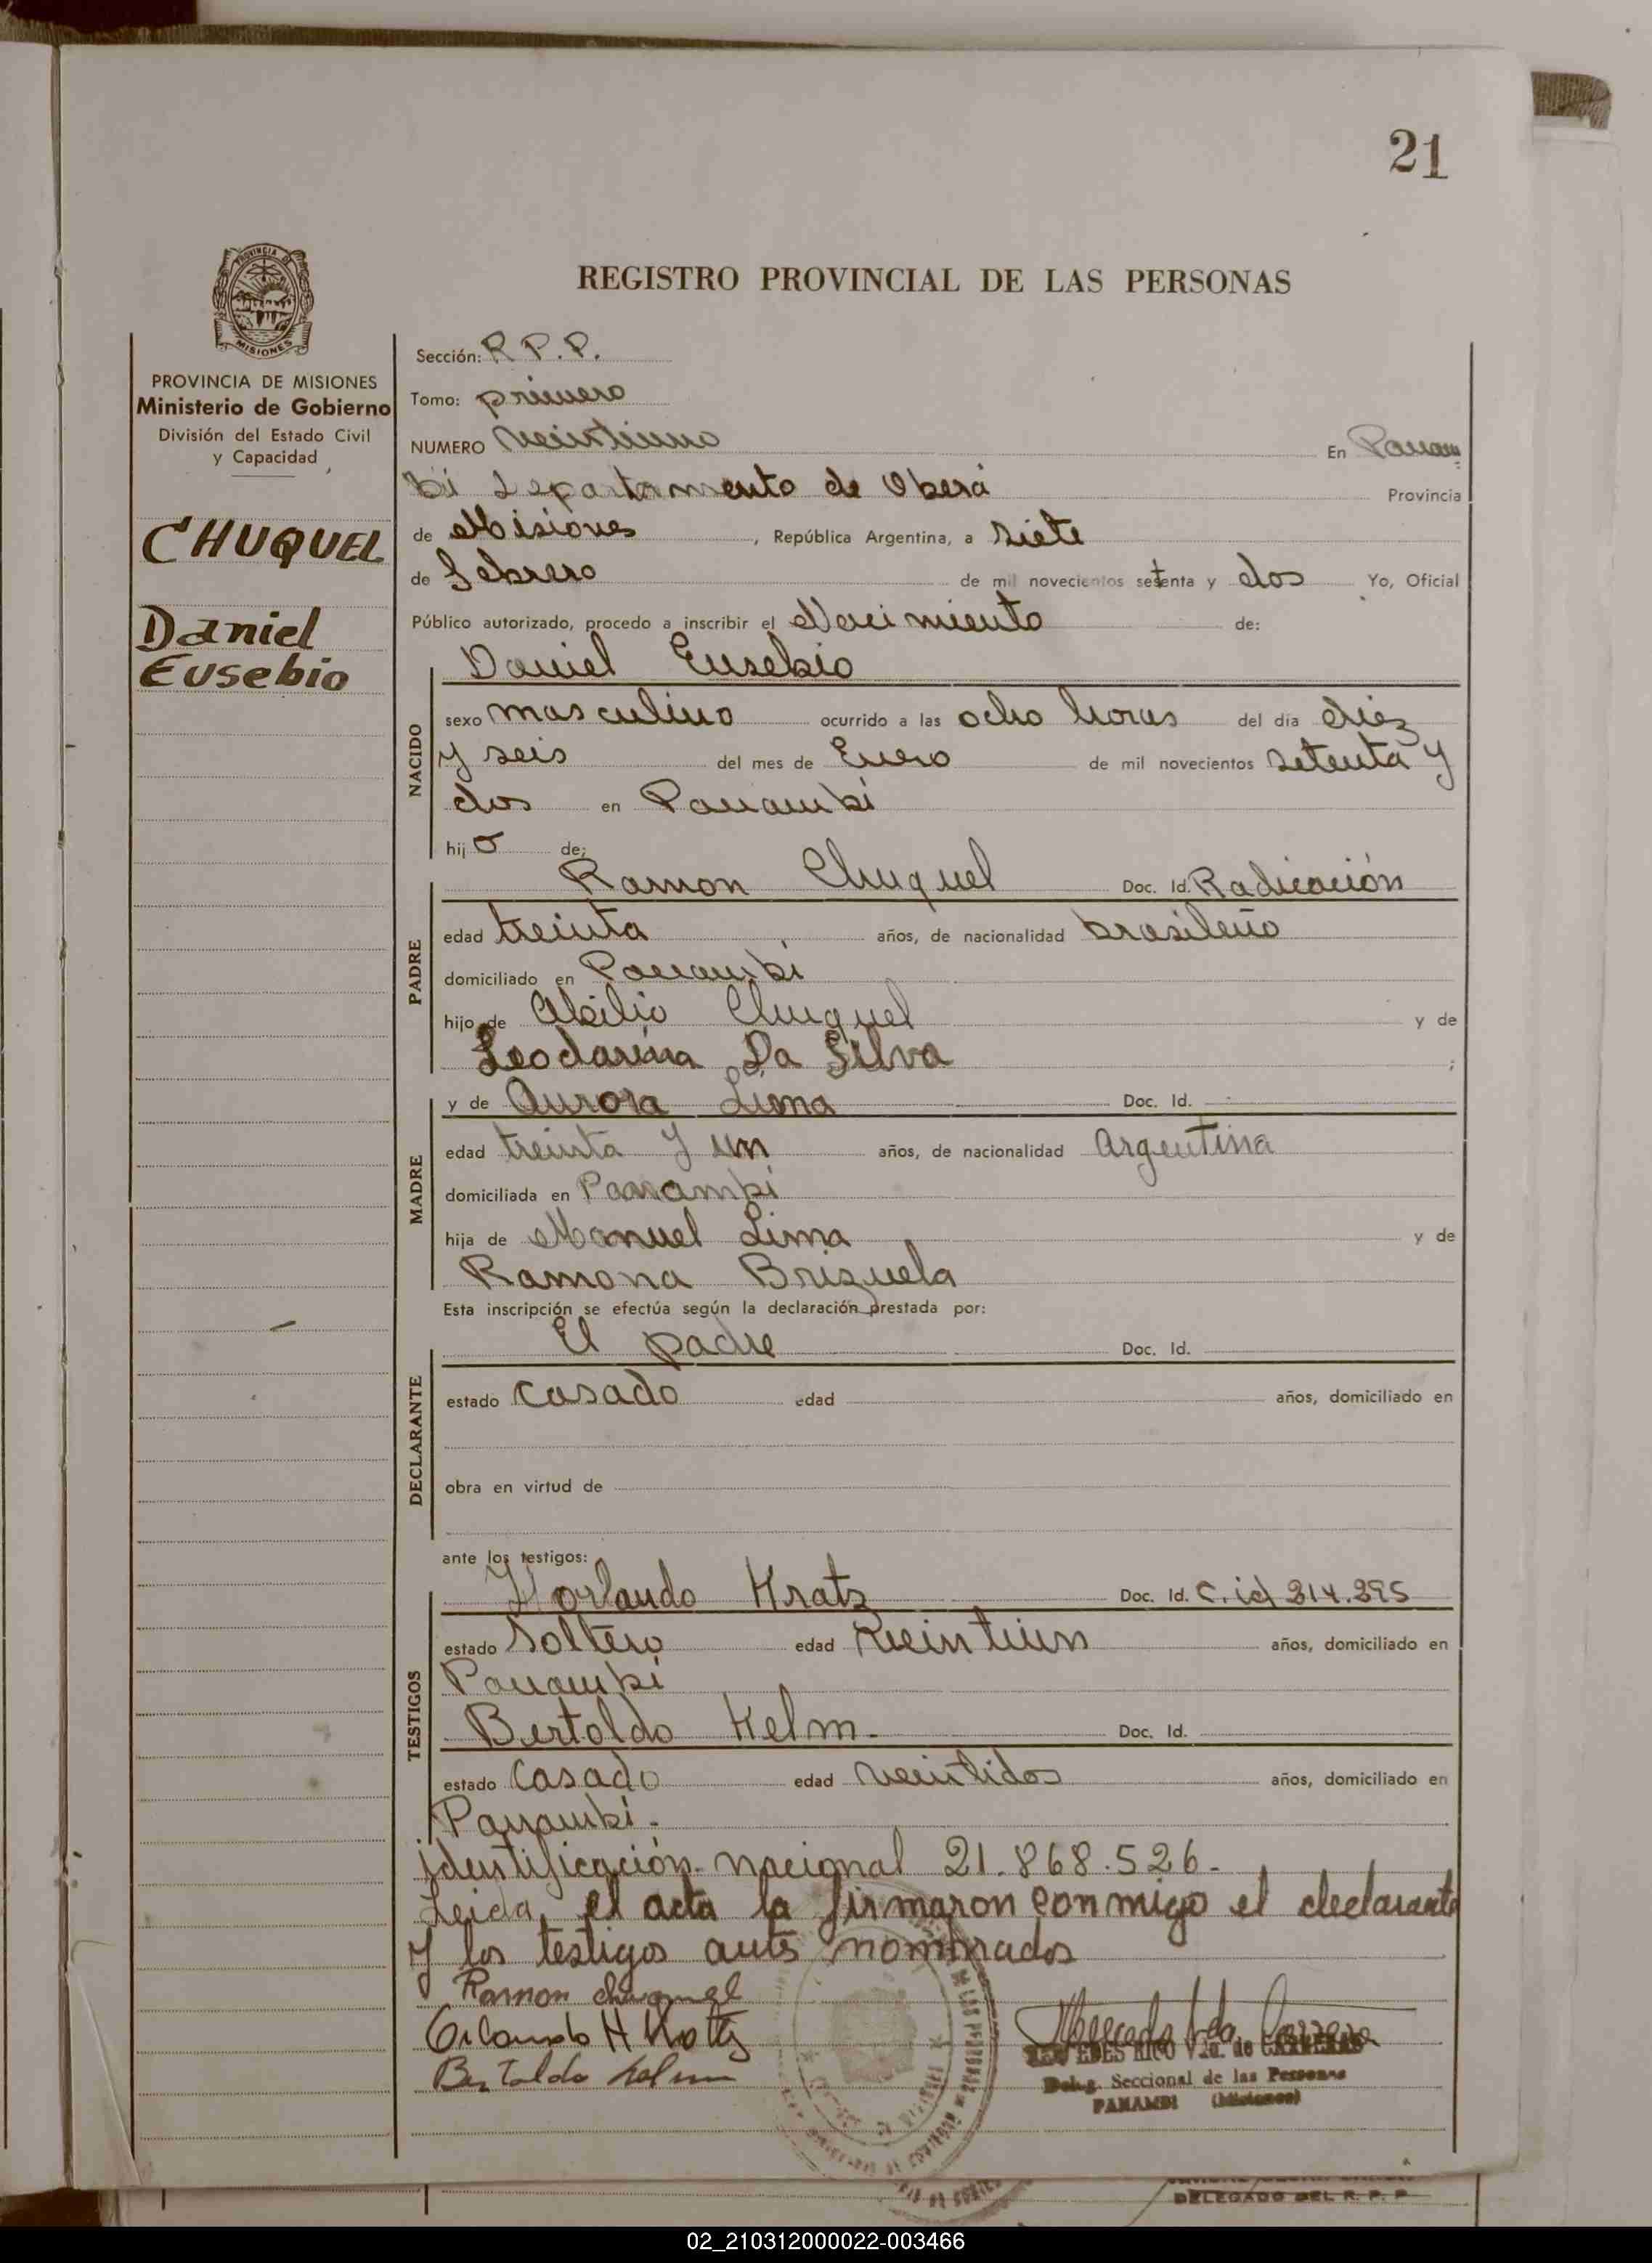 21
REGISTRO PROVINCIAL DE LAS PERSONAS
PROVINCIA DE MISIONES
Ministerio de Gobierno
División del Estado Civil
y Capacidad
CHUQUEL
Daniel
Eusebio
Sección: R P.P.
Tomo: primero
NUMERO veintiuno En Panam
bi Departamento de Oberá Provincia
de Misiones, República Argentina, a siete
de Febrero de mil novecientos setenta y dos Yo, Oficial
Público autorizado, procedo a inscribir el Nacimiento de:
Daniel Eusebio
NACIDO
sexo masculino ocurrido a las ocho horas del día diez
y seis del mes de Enero de mil novecientos setenta y
dos en Panambi
hijo de;
PADRE
Ramon Chuquel Doc. Id. Radicación
edad treinta años, de nacionalidad brasileño
domiciliado en Panambi
hijo de Abilio Chuquel y de
Leodarina Da Silva ;
MADRE
y de Aurora Lima Doc. Id. -
edad treinta y un años, de nacionalidad Argentina
domiciliada en Panambi
hija de Manuel Lima y de
Ramona Brizuela
Esta inscripción se efectúa según la declaración prestada por:
DECLARANTE
El padre Doc. Id.
estado casado edad años, domiciliado en
obra en virtud de
ante los testigos:
TESTIGOS
Horlando Kratz Doc. Id. C. id 314.395
estado Soltero edad Veintiun años, domiciliado en
Panambi
Bertoldo Helm. Doc. Id.
estado Casado edad veintidos años, domiciliado en
Panambi.
identificación nacional 21.868.526.
Leida, el acta la firmaron conmigo el declarante
y los testigos antes nombrados
Ramon Chuquel
Orlando H Kratz
Bertoldo Helm
RICO Vda. de CARRERAS
Deleg. Seccional de las Personas
PANAMBI (Misiones)
DELEGADO DEL R. P. P.
02_210312000022-003466